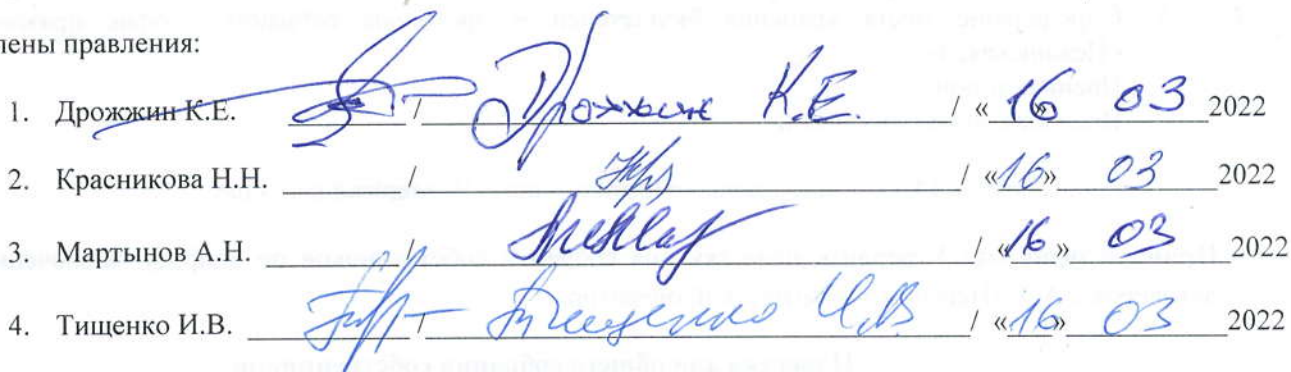 лены правления:
1. Дрожжин К.Е. / Дрожжин К.Е. / «16» 03 2022
2. Красникова Н.Н. / / «16» 03 2022
3. Мартынов А.Н. / / «16» 03 2022
4. Тищенко И.В. / Тищенко И.В / «16» 03 2022